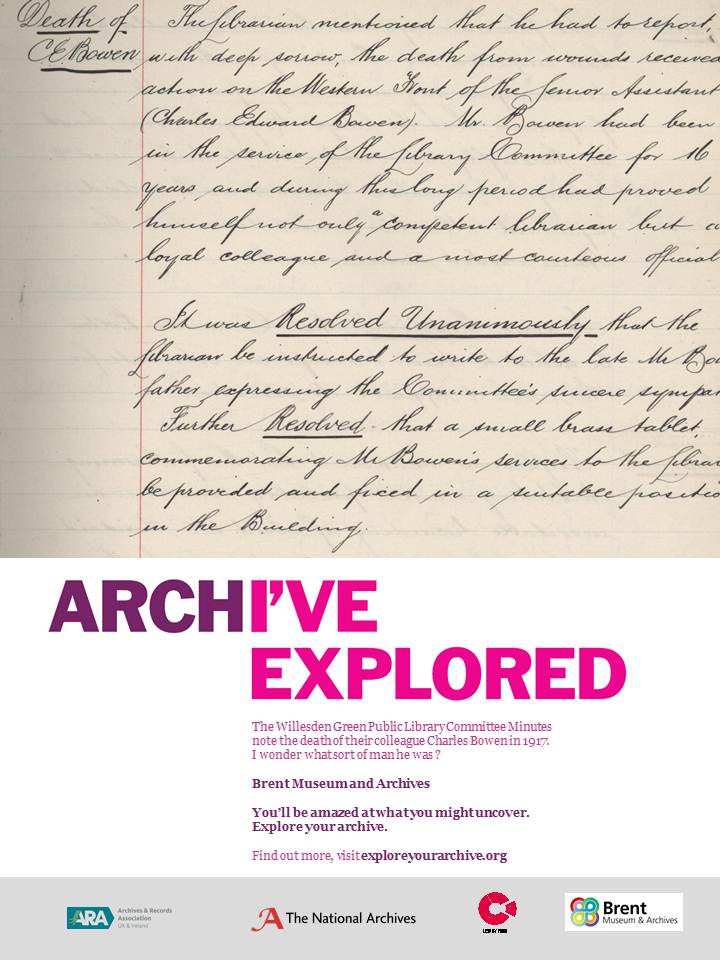 Death of
C E Bowen
The Librarian mentioned that he had to report,
with deep sorrow, the death from wounds received
action on the Western Front of the Senior Assistant
(Charles Edward Bowen). Mr. Bowen had been
in the service of the Library Committee for 16
years and during this long period had proved
himself not only a competent librarian but a
loyal colleague and a most courteous official
It was Resolved Unanimously that the
Librarian be instructed to write to the late Mr Bow
father expressing the Committee's sincere sympa
Further Resolved - that a small brass tablet,
commemorating Mr Bowen's services to the Librar
be provided and fixed in a suitable positio
in the Building.
ARCHI'VE
EXPLORED
The Willesden Green Public Library Committee Minutes
note the death of their colleague Charles Bowen in 1917.
I wonder what sort of man he was ?
Brent Museum and Archives
You'll be amazed at what you might uncover.
Explore your archive.
Find out more, visit exploreyourarchive.org
ARA
Archives & Records
Association
UK & Ireland
The National Archives
Brent
Museum & Archives